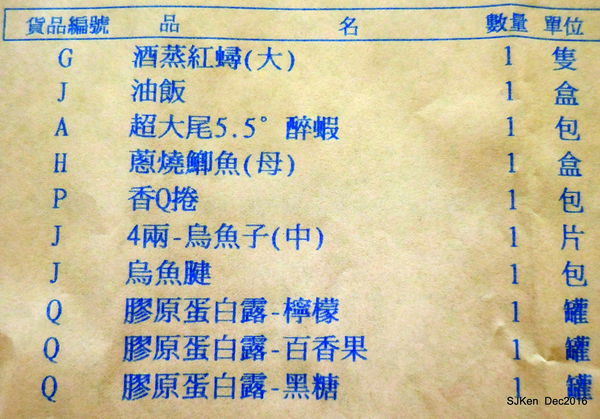 貨品編號 品名 數量 單位
G 酒蒸紅蟳(大) 1 隻
J 油飯 1 盒
A 超大尾5.5°醉蝦 1 包
H 蔥燒鯽魚(母) 1 盒
P 香Q捲 1 包
J 4兩-烏魚子(中) 1 片
J 烏魚腱 1 包
Q 膠原蛋白露-檸檬 1 罐
Q 膠原蛋白露-百香果 1 罐
Q 膠原蛋白露-黑糖 1 罐
SJKen Dec2016